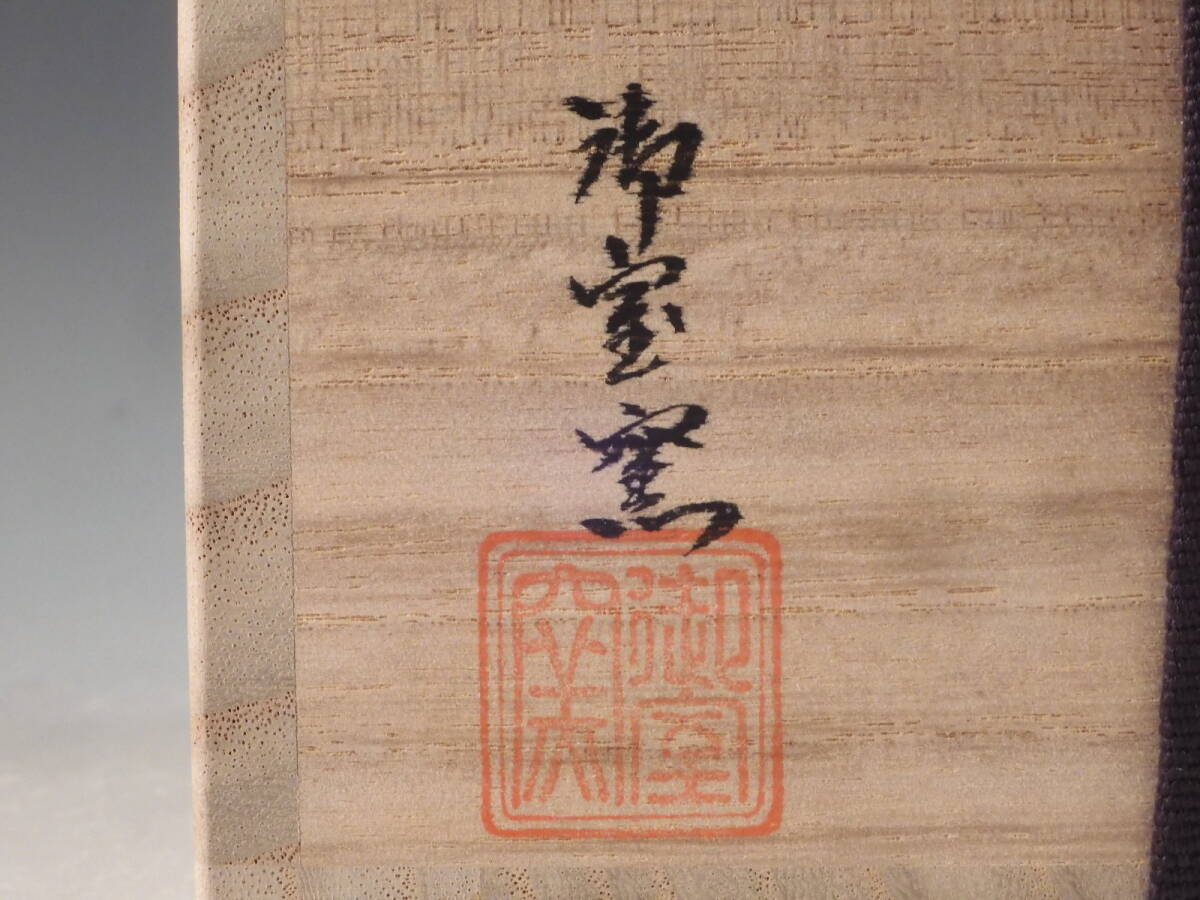 御室窯
御室窯